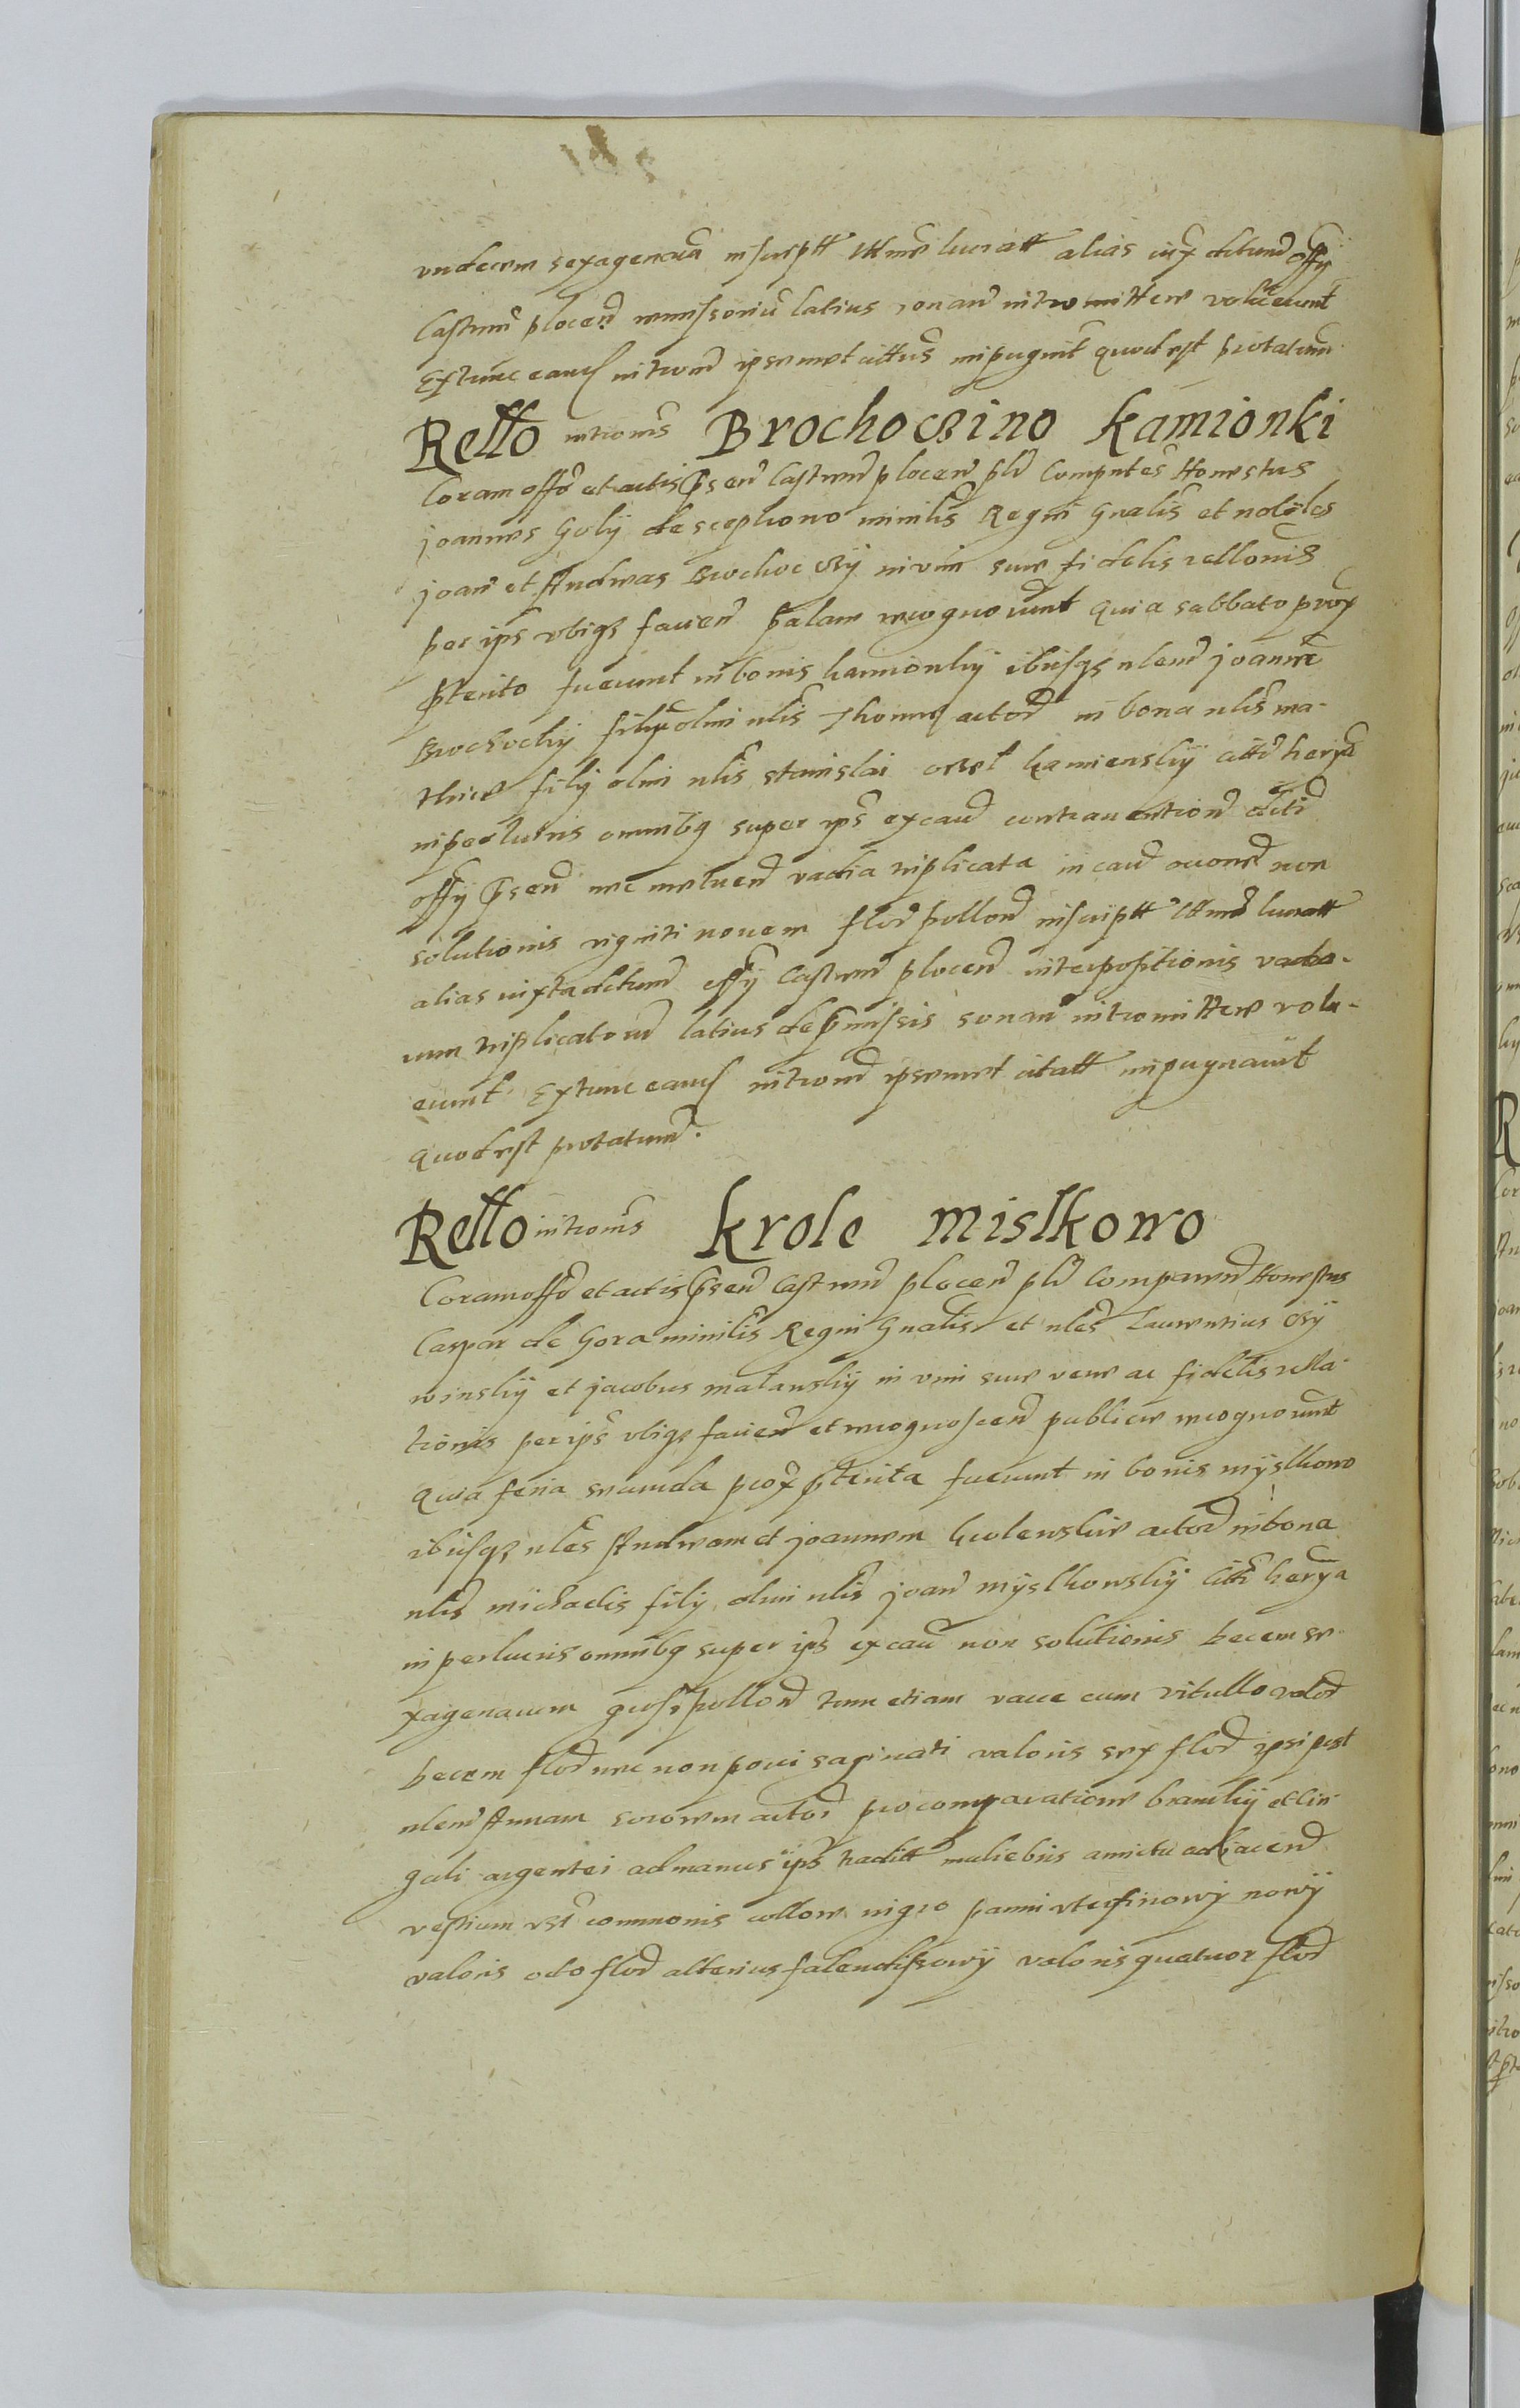 vndecem sexagenarū inscriptt termē lucratt alias iux decretum offy
Castrmm plocen remissoriū latius sonan intromittere voluerunt
Extunc eand intromm ipsemet cittus inpugnit quod est protatum
Rello intromis Brochoczino kamionki
Coram offo et actis psen Castrmm plocen plr Computes Honestus
joannes Goly de scepkowo minilis Regni Gnalis et nobiles
joan et Andreas Brochoczky in vim sue fidelis rellonis
per ips vbiqz facien palam recognouerunt quia sabbato prox
pterito fuerunt in bonis kamionky ibusqz nlem joannē
Brochocky filiu olim nlis Thome actore in bona nlis ma-
thie fily olim nlis stanislai orzel kamiensky citti hertia
inperlucris omnibq super ips ex cau contrauention dicti
offy psen nec metuen vadia triplicata in cau ouone non
solutionis viginti nouem flor pollon inscriptt termē lucratt
alias iuxta decretum offy Castrmm plocen interpositionis vadio-
rum triplicatorum latius de pmissis sonan intromittere volu-
erunt Extunc eand intromm ipsemet citatt inpugnauit
quod est protatum.
Rello intromis krole mislkowo
Coram offo et actis psen Castrmm plocen plr Comparen Honestus
Caspar de Gora minilis Regni Gnalis et nles Laurentius
winsky et jacobus malansky in vim sue vere ac fidelis rella-
tionis per ips vbiqz facien et recognoscen publice recognouerunt
quia feria secunda prox pterita fuerunt in bonis myslkowo
ibusqz nles Andream et joannem krolewskie actores in bona
nlis michaelis fily olim nlis joan myslkowsky citti hertia
in perlucris omnibq super ips ex cau non solutionis decem se-
xagenarum gross pollon tum etiam vacce cum vitullo valor
decem flor nec non porci saginati valoris sex flor ipsi pst
nlem Annam sororem actor pro comparatione bramky et cin-
guli argentei ad manus ips traditt muliebris amictu adiacen
vestium vst communis collore nigro panni vterfinowy nowy
valoris octo flor alterius falendissowy valoris quatuor flor